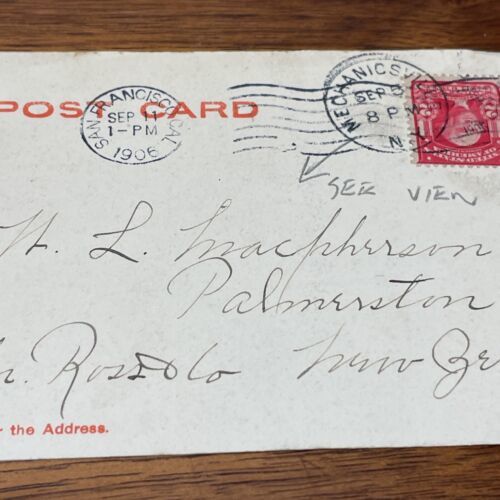 POST CARD
SAN FRANCISCO, CAL.
SEP 11
1-PM
1906
MECHANICSV
SEP 5
8 PM
N.Y.
SEE VIEW
H. L. Macpherson
Palmerston
Ross & Co New Ze
the Address.